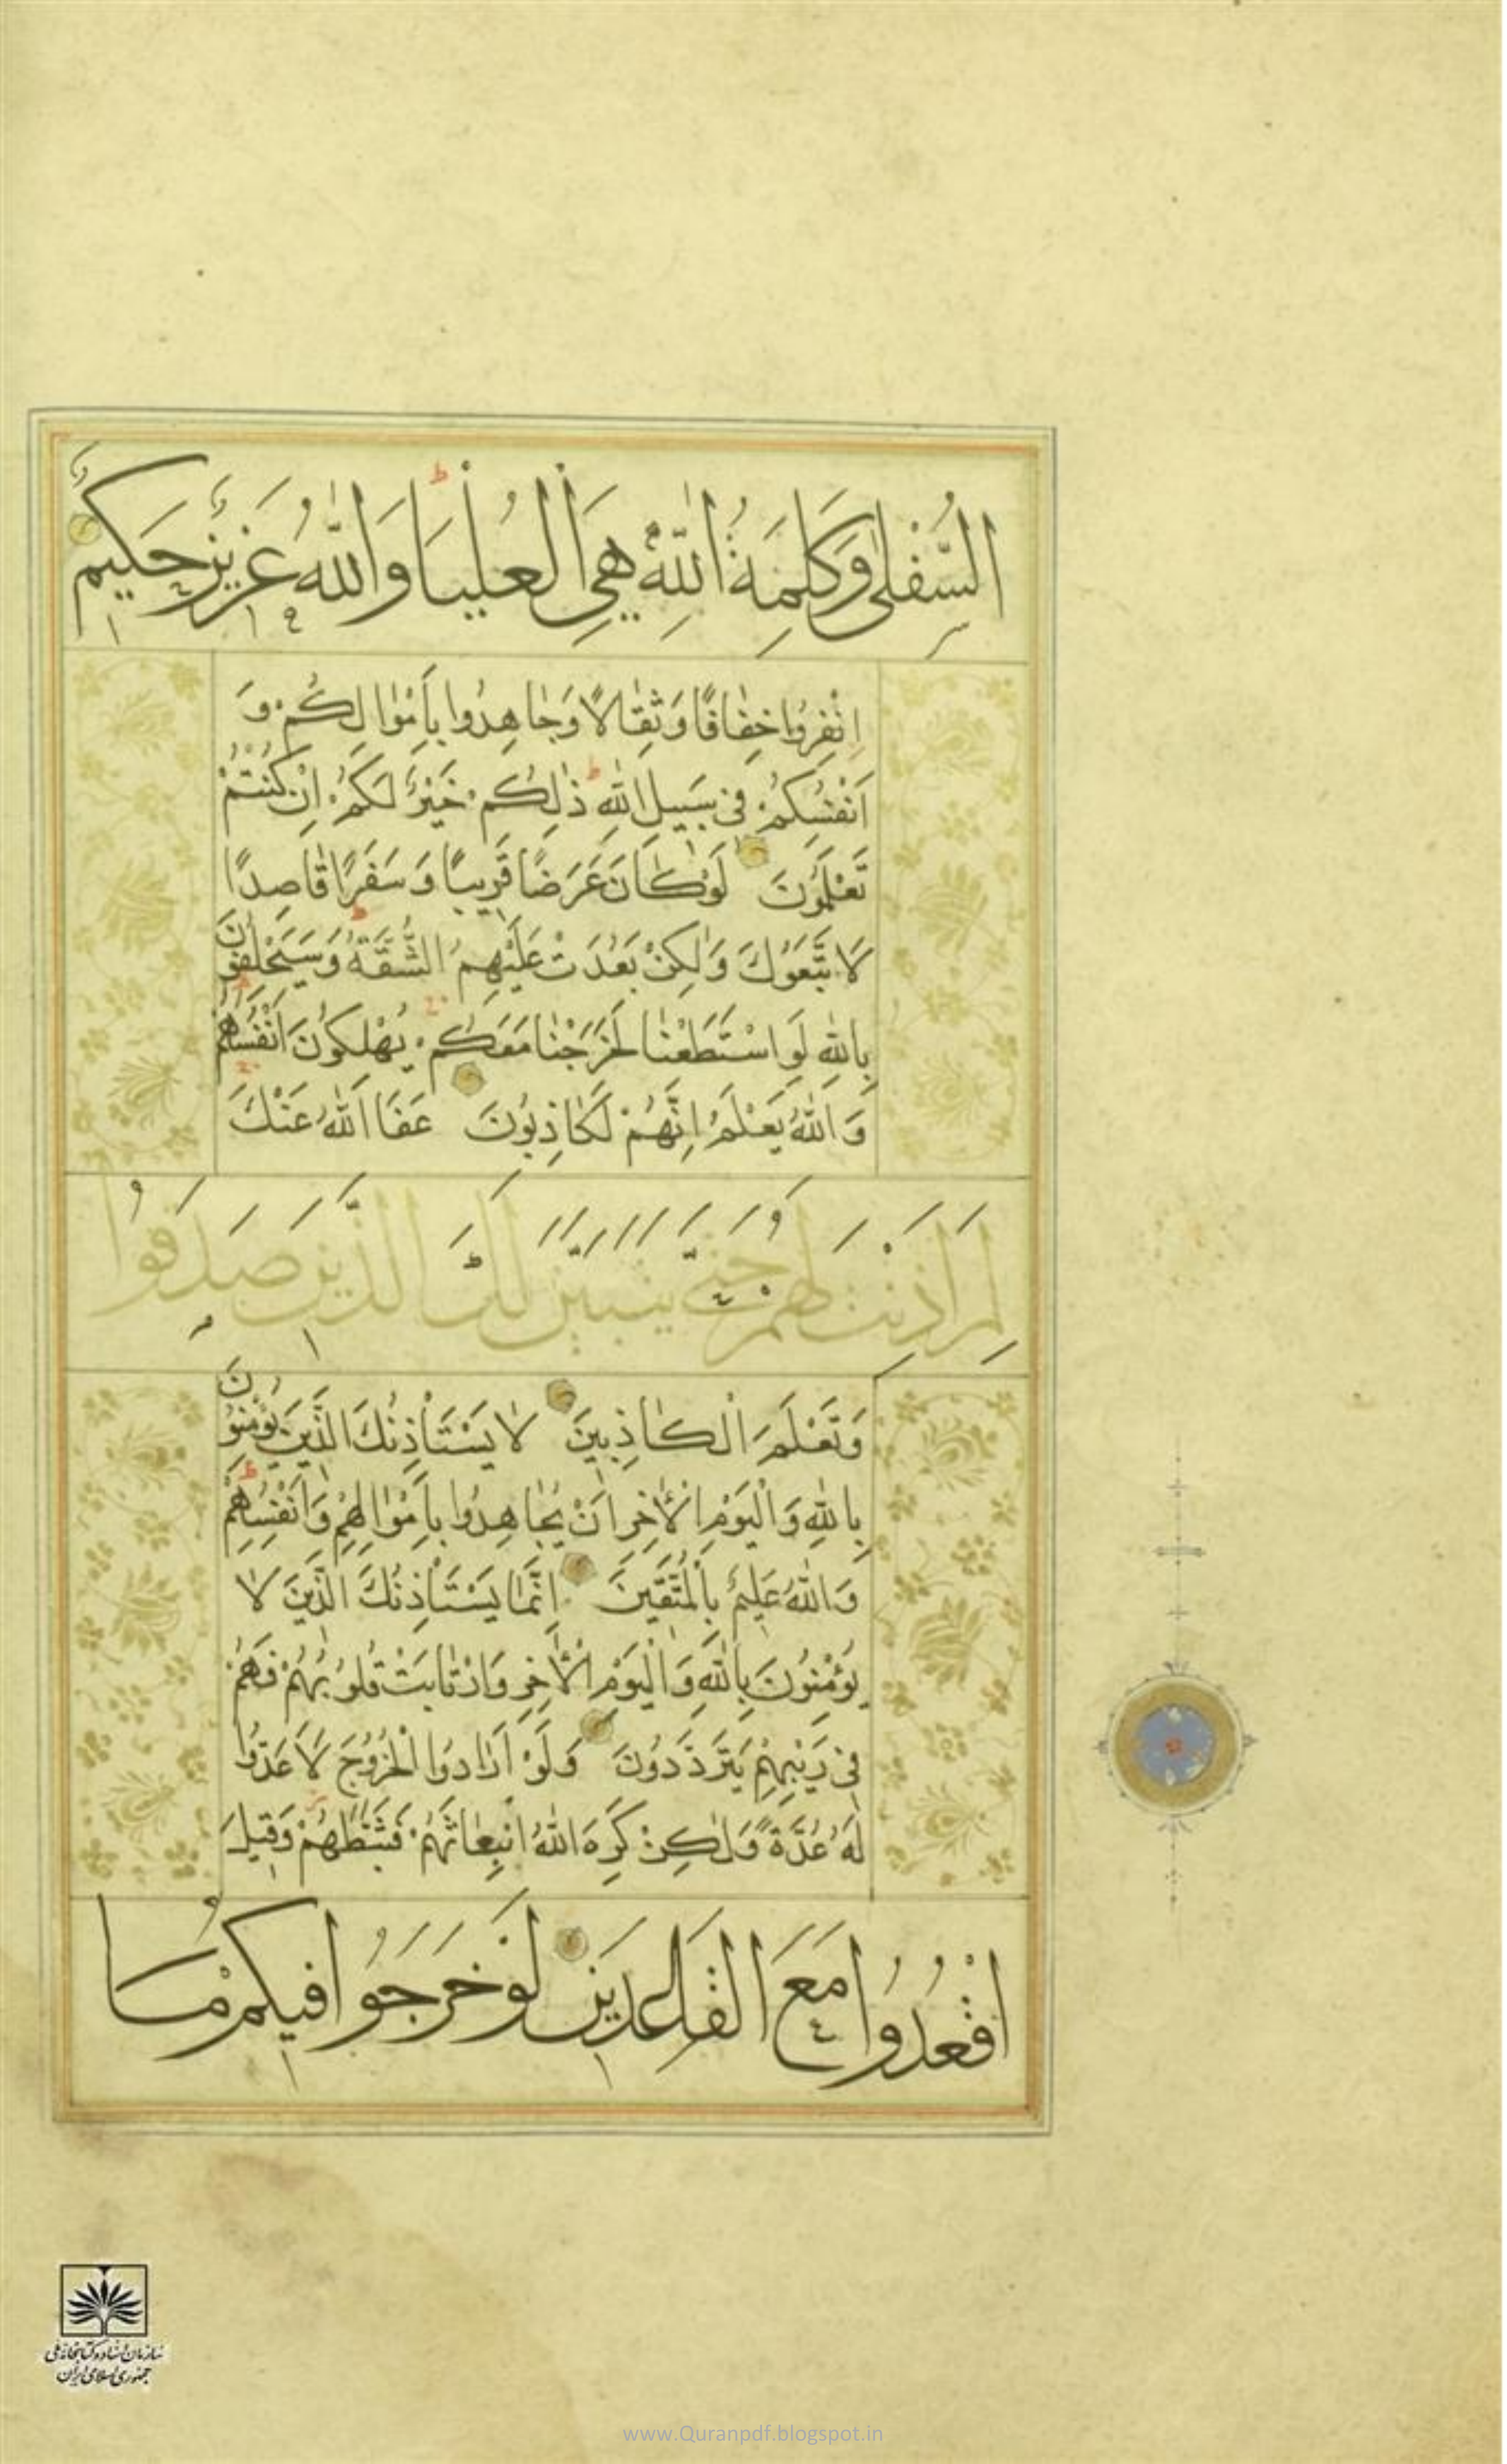 السُّفْلىٰ وَكَلِمَةُ اللّٰهِ هِيَ الْعُلْيَا وَاللّٰهُ عَزِيزٌ حَكِيمٌ
اِنْفِرُوا خِفٰافًا وَثِقٰالًا وَجٰاهِدُوا بِاَمْوٰالِكُمْ وَ
اَنْفُسِكُمْ فِى سَبِيلِ اللّٰهِ ذٰلِكُمْ خَيْرٌ لَكُمْ اِنْ كُنْتُمْ
تَعْلَمُونَ لَوْ كٰانَ عَرَضًا قَرِيبًا وَ سَفَرًا قٰاصِدًا
لَا تَّبَعُوكَ وَلٰكِنْ بَعُدَتْ عَلَيْهِمُ الشُّقَّةُ وَسَيَحْلِفُونَ
بِاللّٰهِ لَوِ اسْتَطَعْنٰا لَخَرَجْنٰا مَعَكُمْ يُهْلِكُونَ اَنْفُسَهُمْ
وَاللّٰهُ يَعْلَمُ اِنَّهُمْ لَكٰاذِبُونَ عَفَا اللّٰهُ عَنْكَ
لِمَ اَذِنْتَ لَهُمْ حَتّٰى يَتَبَيَّنَ لَكَ الَّذِينَ صَدَقُوا
وَتَعْلَمَ الْكٰاذِبِينَ لٰا يَسْتَأْذِنُكَ الَّذِينَ يُؤْمِنُونَ
بِاللّٰهِ وَالْيَوْمِ الْاٰخِرِ اَنْ يُجٰاهِدُوا بِاَمْوٰالِهِمْ وَاَنْفُسِهِمْ
وَاللّٰهُ عَلِيمٌ بِالْمُتَّقِينَ اِنَّمٰا يَسْتَأْذِنُكَ الَّذِينَ لٰا
يُؤْمِنُونَ بِاللّٰهِ وَالْيَوْمِ الْاٰخِرِ وَارْتٰابَتْ قُلُوبُهُمْ فَهُمْ
فِى رَيْبِهِمْ يَتَرَدَّدُونَ وَلَوْ اَرٰادُوا الْخُرُوجَ لَاَعَدُّوا
لَهُ عُدَّةً وَلٰكِنْ كَرِهَ اللّٰهُ انْبِعٰاثَهُمْ فَثَبَّطَهُمْ وَقِيلَ
اقْعُدُوا مَعَ الْقٰاعِدِينَ لَوْ خَرَجُوا فِيكُمْ مٰا
سازمان اسناد و کتابخانه ملی
جمهوری اسلامی ایران
www.Quranpdf.blogspot.in